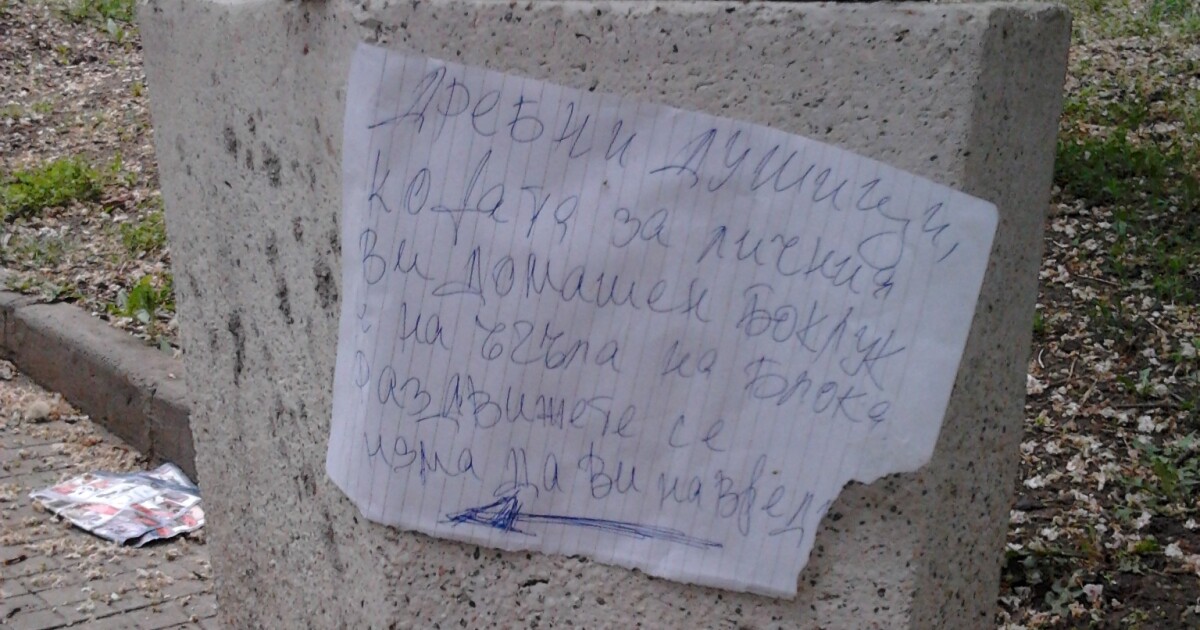 ДРЕБНИ ДУШИЦИ,
КОФАТА ЗА ЛИЧНИЯ
ВИ ДОМАШЕН БОКЛУК
Е НА ЪГЪЛА НА БЛОКА
РАЗДВИЖЕТЕ СЕ
НЯМА ДА ВИ НАВРЕД